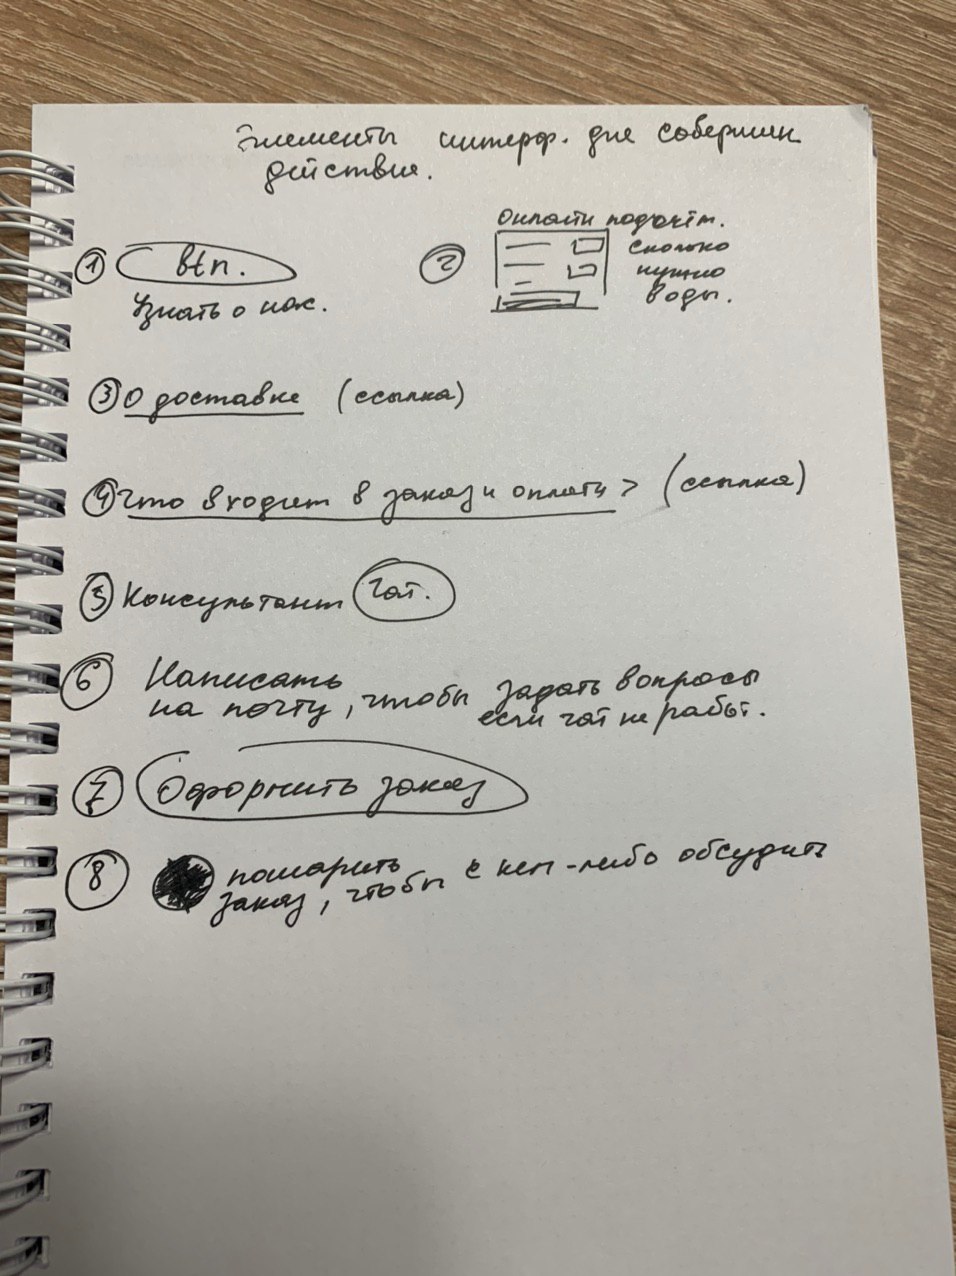 Элементы интерф. для совершен
действия.
1 btn.
Узнать о нас.
2 Онлайн подсчёт.
сколько
нужно
воды.
3 О доставке (ссылка)
4 Что входит в заказ и оплату > (ссылка)
5 Консультант чат.
6 Написать
на почту, чтобы задать вопросы
если чат не работ.
7 Оформить заказ
8 пошарить
заказ, чтобы с кем-либо обсудить